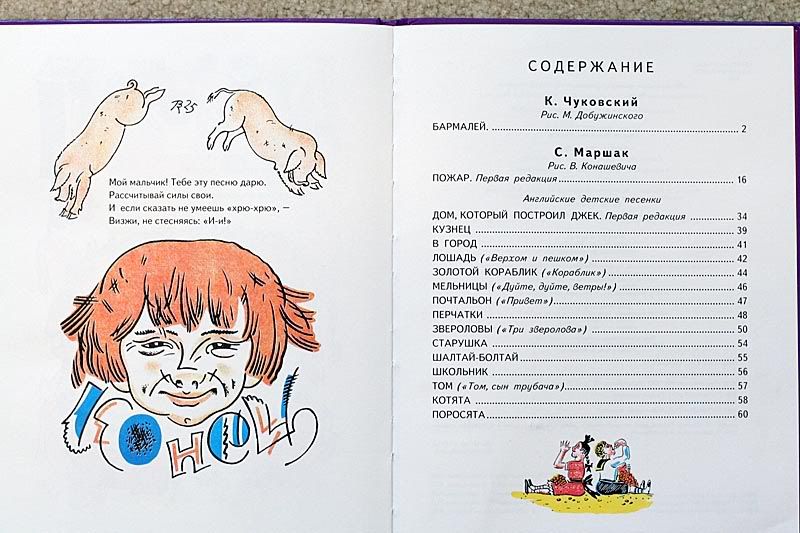 Мой мальчик! Тебе эту песню дарю.
Рассчитывай силы свои.
И если сказать не умеешь «хрю-хрю», –
Визжи, не стесняясь: «И-и!»
КОНЕЦ
СОДЕРЖАНИЕ
К. Чуковский
Рис. М. Добужинского
БАРМАЛЕЙ. 2
С. Маршак
Рис. В. Конашевича
ПОЖАР. Первая редакция 16
Английские детские песенки
ДОМ, КОТОРЫЙ ПОСТРОИЛ ДЖЕК. Первая редакция 34
КУЗНЕЦ 39
В ГОРОД 41
ЛОШАДЬ («Верхом и пешком») 42
ЗОЛОТОЙ КОРАБЛИК («Кораблик») 44
МЕЛЬНИЦЫ («Дуйте, дуйте, ветры!») 46
ПОЧТАЛЬОН («Привет») 47
ПЕРЧАТКИ 48
ЗВЕРОЛОВЫ («Три зверолова») 50
СТАРУШКА 54
ШАЛТАЙ-БОЛТАЙ 55
ШКОЛЬНИК 56
ТОМ («Том, сын трубача») 57
КОТЯТА 58
ПОРОСЯТА 60